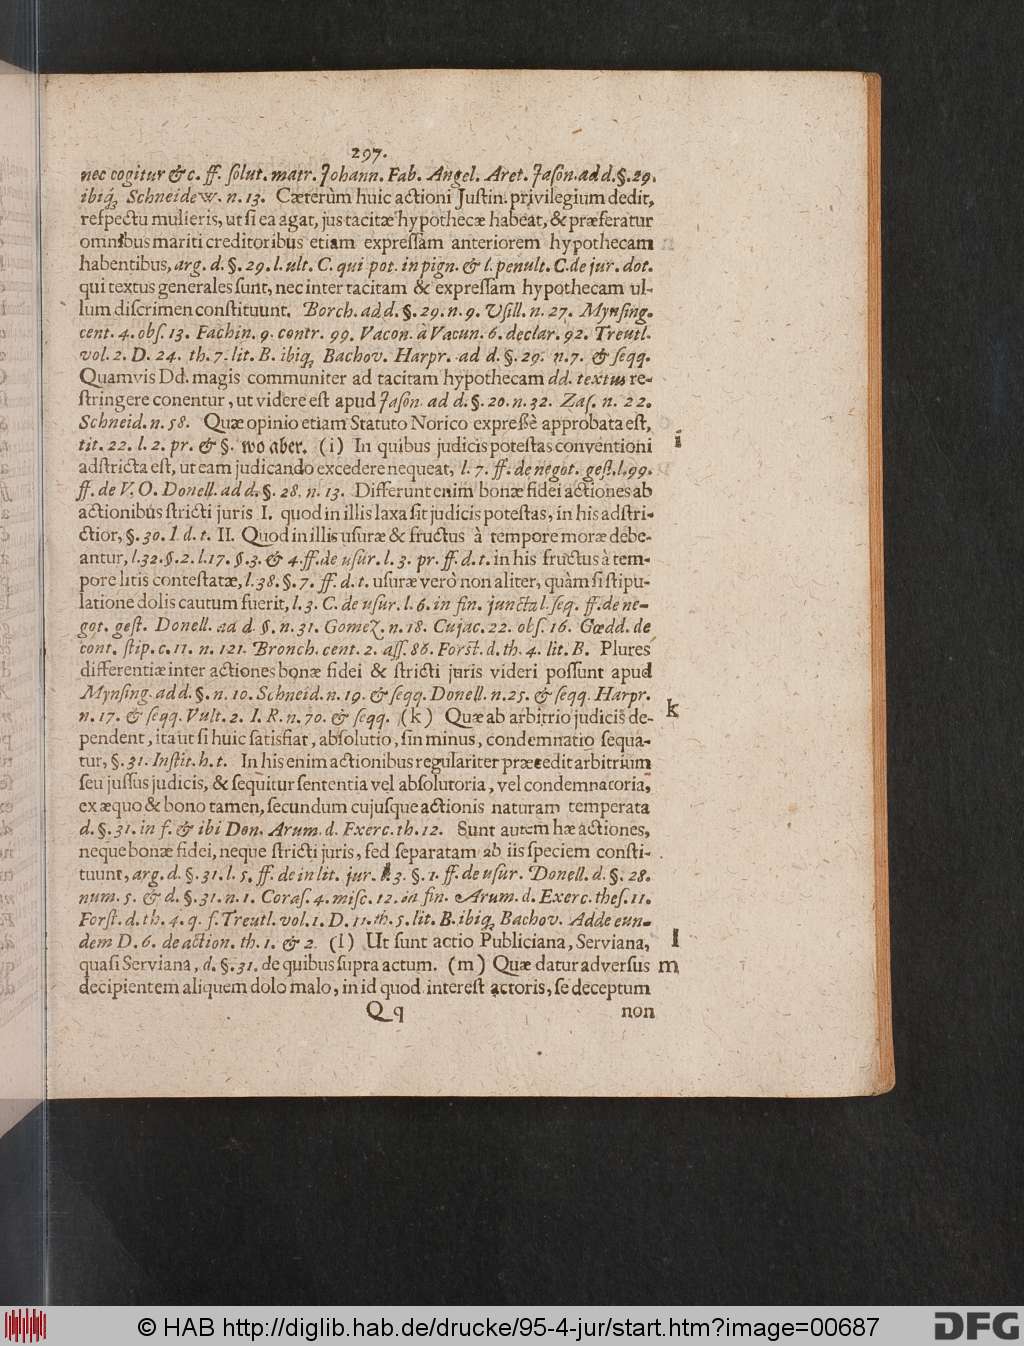 297.
nec cogitur &c. ff. solut. matr. Johann. Fab. Angel. Aret. Jason. ad d. §. 29.
ibiq; Schneidew. n. 13. Cæterùm huic actioni Justin. privilegium dedit,
respectu mulieris, ut si ea agat, jus tacitæ hypothecæ habeat, & præferatur
omnibus mariti creditoribus etiam expressam anteriorem hypothecam
habentibus, arg. d. §. 29. l. ult. C. qui pot. in pign. & l. penult. C. de jur. dot.
qui textus generales sunt, nec inter tacitam & expressam hypothecam ul-
lum discrimen constituunt. Borch. ad d. §. 29. n. 9. Vsill. n. 27. Mynsing.
cent. 4. obs. 13. Fachin. 9. contr. 99. Vacon. à Vacun. 6. declar. 92. Treutl.
vol. 2. D. 24. th. 7. lit. B. ibiq; Bachov. Harpr. ad d. §. 29. n. 7. & seqq.
Quamvis Dd. magis communiter ad tacitam hypothecam dd. textus re-
stringere conentur, ut videre est apud Jason ad d. §. 20. n. 32. Zas. n. 22.
Schneid. n. 58. Quæ opinio etiam Statuto Norico expressè approbata est,
tit. 22. l. 2. pr. & §. wo aber. (i) In quibus judicis potestas conventioni
i
adstricta est, ut eam judicando excedere nequeat, l. 7. ff. de negot. gest. l. 99.
ff. de V. O. Donell. ad d. §. 28. n. 13. Differunt enim bonæ fidei actiones ab
actionibus stricti juris I. quod in illis laxa sit judicis potestas, in his adstri-
ctior, §. 30. I. d. t. II. Quod in illis usuræ & fructus à tempore moræ debe-
antur, l. 32. §. 2. l. 17. §. 3. & 4. ff. de usur. l. 3. pr. ff. d. t. in his fructus à tem-
pore litis contestatæ, l. 38. §. 7. ff. d. t. usuræ verò non aliter, quàm si stipu-
latione dolis cautum fuerit, l. 3. C. de usur. l. 6. in fin. juncta l. seq. ff. de ne-
got. gest. Donell. ad d. §. n. 31. Gomez. n. 18. Cujac. 22. obs. 16. Gœdd. de
cont. stip. c. 11. n. 121. Bronch. cent. 2. ass. 86. Forst. d. th. 4. lit. B. Plures
differentiæ inter actiones bonæ fidei & stricti juris videri possunt apud
Mynsing. ad d. §. n. 10. Schneid. n. 19. & seqq. Donell. n. 25. & seqq. Harpr.
n. 17. & seqq. Vult. 2. I. R. n. 70. & seqq. (k) Quæ ab arbitrio judicis de-
k
pendent, ita ut si huic satisfiat, absolutio, sin minus, condemnatio sequa-
tur, §. 31. Instit. h. t. In his enim actionibus regulariter præcedit arbitrium
seu jussus judicis, & sequitur sententia vel absolutoria, vel condemnatoria,
ex æquo & bono tamen, secundum cujusque actionis naturam temperata
d. §. 31. in f. & ibi Don. Arum. d. Exerc. th. 12. Sunt autem hæ actiones,
neque bonæ fidei, neque stricti juris, sed separatam ab iis speciem consti-
tuunt, arg. d. §. 31. l. 5. ff. de in lit. jur. l. 3. §. 1. ff. de usur. Donell. d. §. 28.
num. 5. & d. §. 31. n. 1. Coras. 4. misc. 12. in fin. Arum. d. Exerc. thes. 11.
Forst. d. th. 4. q. s. Treutl. vol. 1. D. 11. th. 5. lit. B. ibiq; Bachov. Adde eun-
dem D. 6. de action. th. 1. & 2. (l) Ut sunt actio Publiciana, Serviana,
l
quasi Serviana, d. §. 31. de quibus supra actum. (m) Quæ datur adversus
m
decipientem aliquem dolo malo, in id quod interest actoris, se deceptum
Qq
non
© HAB http://diglib.hab.de/drucke/95-4-jur/start.htm?image=00687
DFG